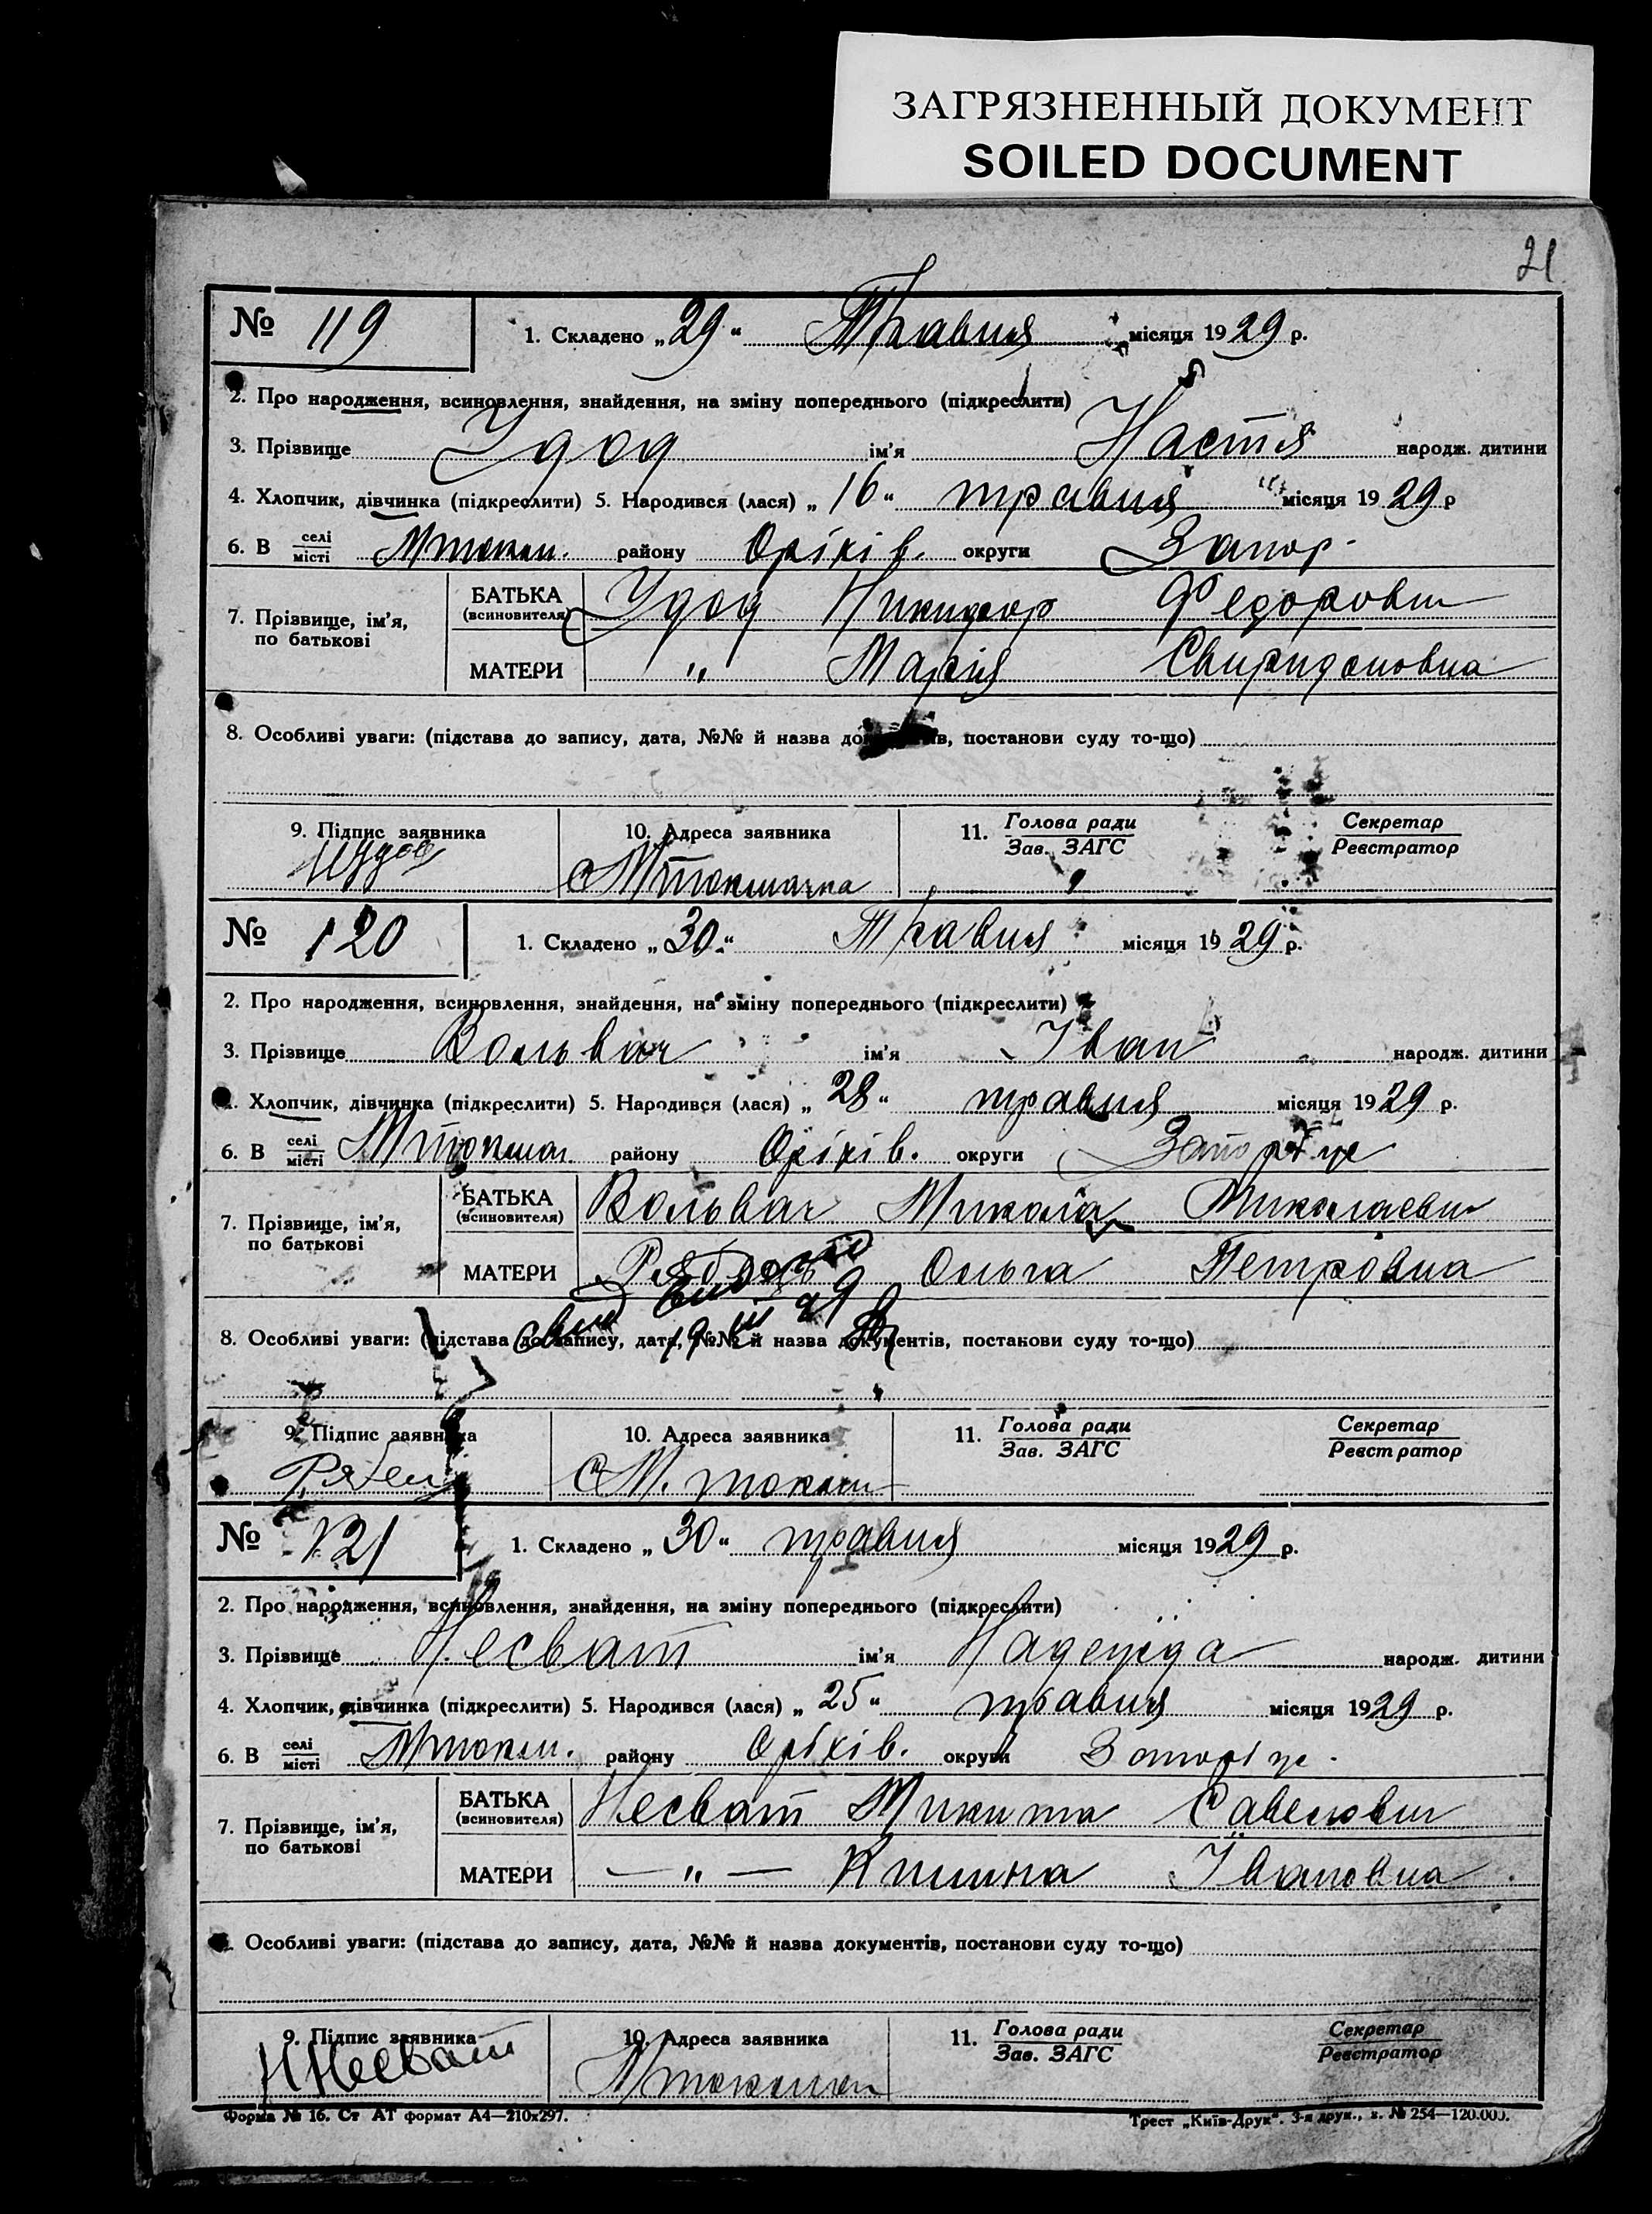 ЗАГРЯЗНЕННЫЙ ДОКУМЕНТ
SOILED DOCUMENT
21
№ 119 1. Складено „29“ Травня місяця 1929 р.
2. Про народження, всиновлення, знайдення, на зміну попереднього (підкреслити)
3. Прізвище Удод ім'я Настя народж. дитини
4. Хлопчик, дівчинка (підкреслити) 5. Народився (лася) „16“ травня місяця 1929 р
6. В селі/місті Мтокм. району Оріхів. округи Запор.
7. Прізвище, ім'я, по батькові
БАТЬКА (всиновителя) Удод Никифор Федорович
МАТЕРИ " Марія Свиридоновна
8. Особливі уваги: (підстава до запису, дата, №№ й назва документів, постанови суду то-що)
9. Підпис заявника 10. Адреса заявника 11. Голова ради/Зав. ЗАГС Секретар/Реєстратор
НУдод с Мтокмачка
№ 120 1. Складено „30“ Травня місяця 1929 р.
2. Про народження, всиновлення, знайдення, на зміну попереднього (підкреслити)
3. Прізвище Вольвач ім'я Іван народж. дитини
4. Хлопчик, дівчинка (підкреслити) 5. Народився (лася) „28“ травня місяця 1929 р.
6. В селі/місті Мтокмач. району Оріхів. округи
7. Прізвище, ім'я, по батькові
БАТЬКА (всиновителя) Вольвач Микола Миколаевич
МАТЕРИ Ольга Петровна
8. Особливі уваги: (підстава до запису, дата, №№ й назва документів, постанови суду то-що)
9. Підпис заявника 10. Адреса заявника 11. Голова ради/Зав. ЗАГС Секретар/Реєстратор
с М. токмач
№ 121 1. Складено „30“ травня місяця 1929 р.
2. Про народження, всиновлення, знайдення, на зміну попереднього (підкреслити)
3. Прізвище Несват ім'я Надежда народж. дитини
4. Хлопчик, дівчинка (підкреслити) 5. Народився (лася) „25“ травня місяця 1929 р.
6. В селі/місті Мтокм. району Оріхів. округи
7. Прізвище, ім'я, по батькові
БАТЬКА (всиновителя) Несват Микита Савелович
МАТЕРИ — " — Івановна
8. Особливі уваги: (підстава до запису, дата, №№ й назва документів, постанови суду то-що)
9. Підпис заявника 10. Адреса заявника 11. Голова ради/Зав. ЗАГС Секретар/Реєстратор
ННесват Мтокмач
Форма № 16. Ст АТ формат А4—210х297. Трест „Київ-Друк“. 3-я друк., з. № 254—120.000.